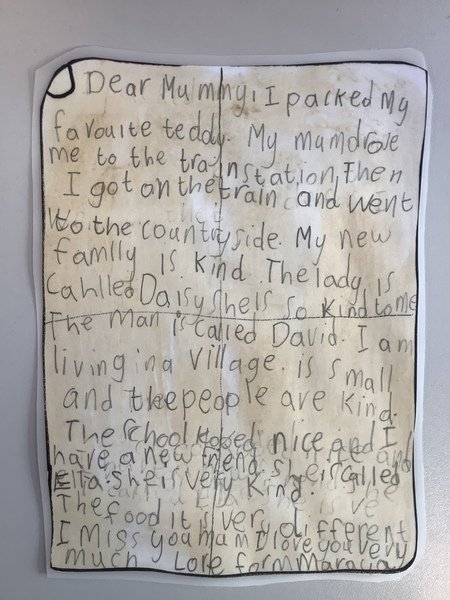 Dear Mummy, I packed My
favouite teddy. My mumdrove
me to the trainstation, Then
I got on the train and went
to the countryside. My new
family is kind. The lady is
Cahlled Daisy She is so kind to me
The Man is called David. I am
living in a Village. is small
and the people are kind.
The School nice and I
have a new friend. She is called
Ella. She is very kind.
The food it is very different
I Miss you mam I love you very
much Love form